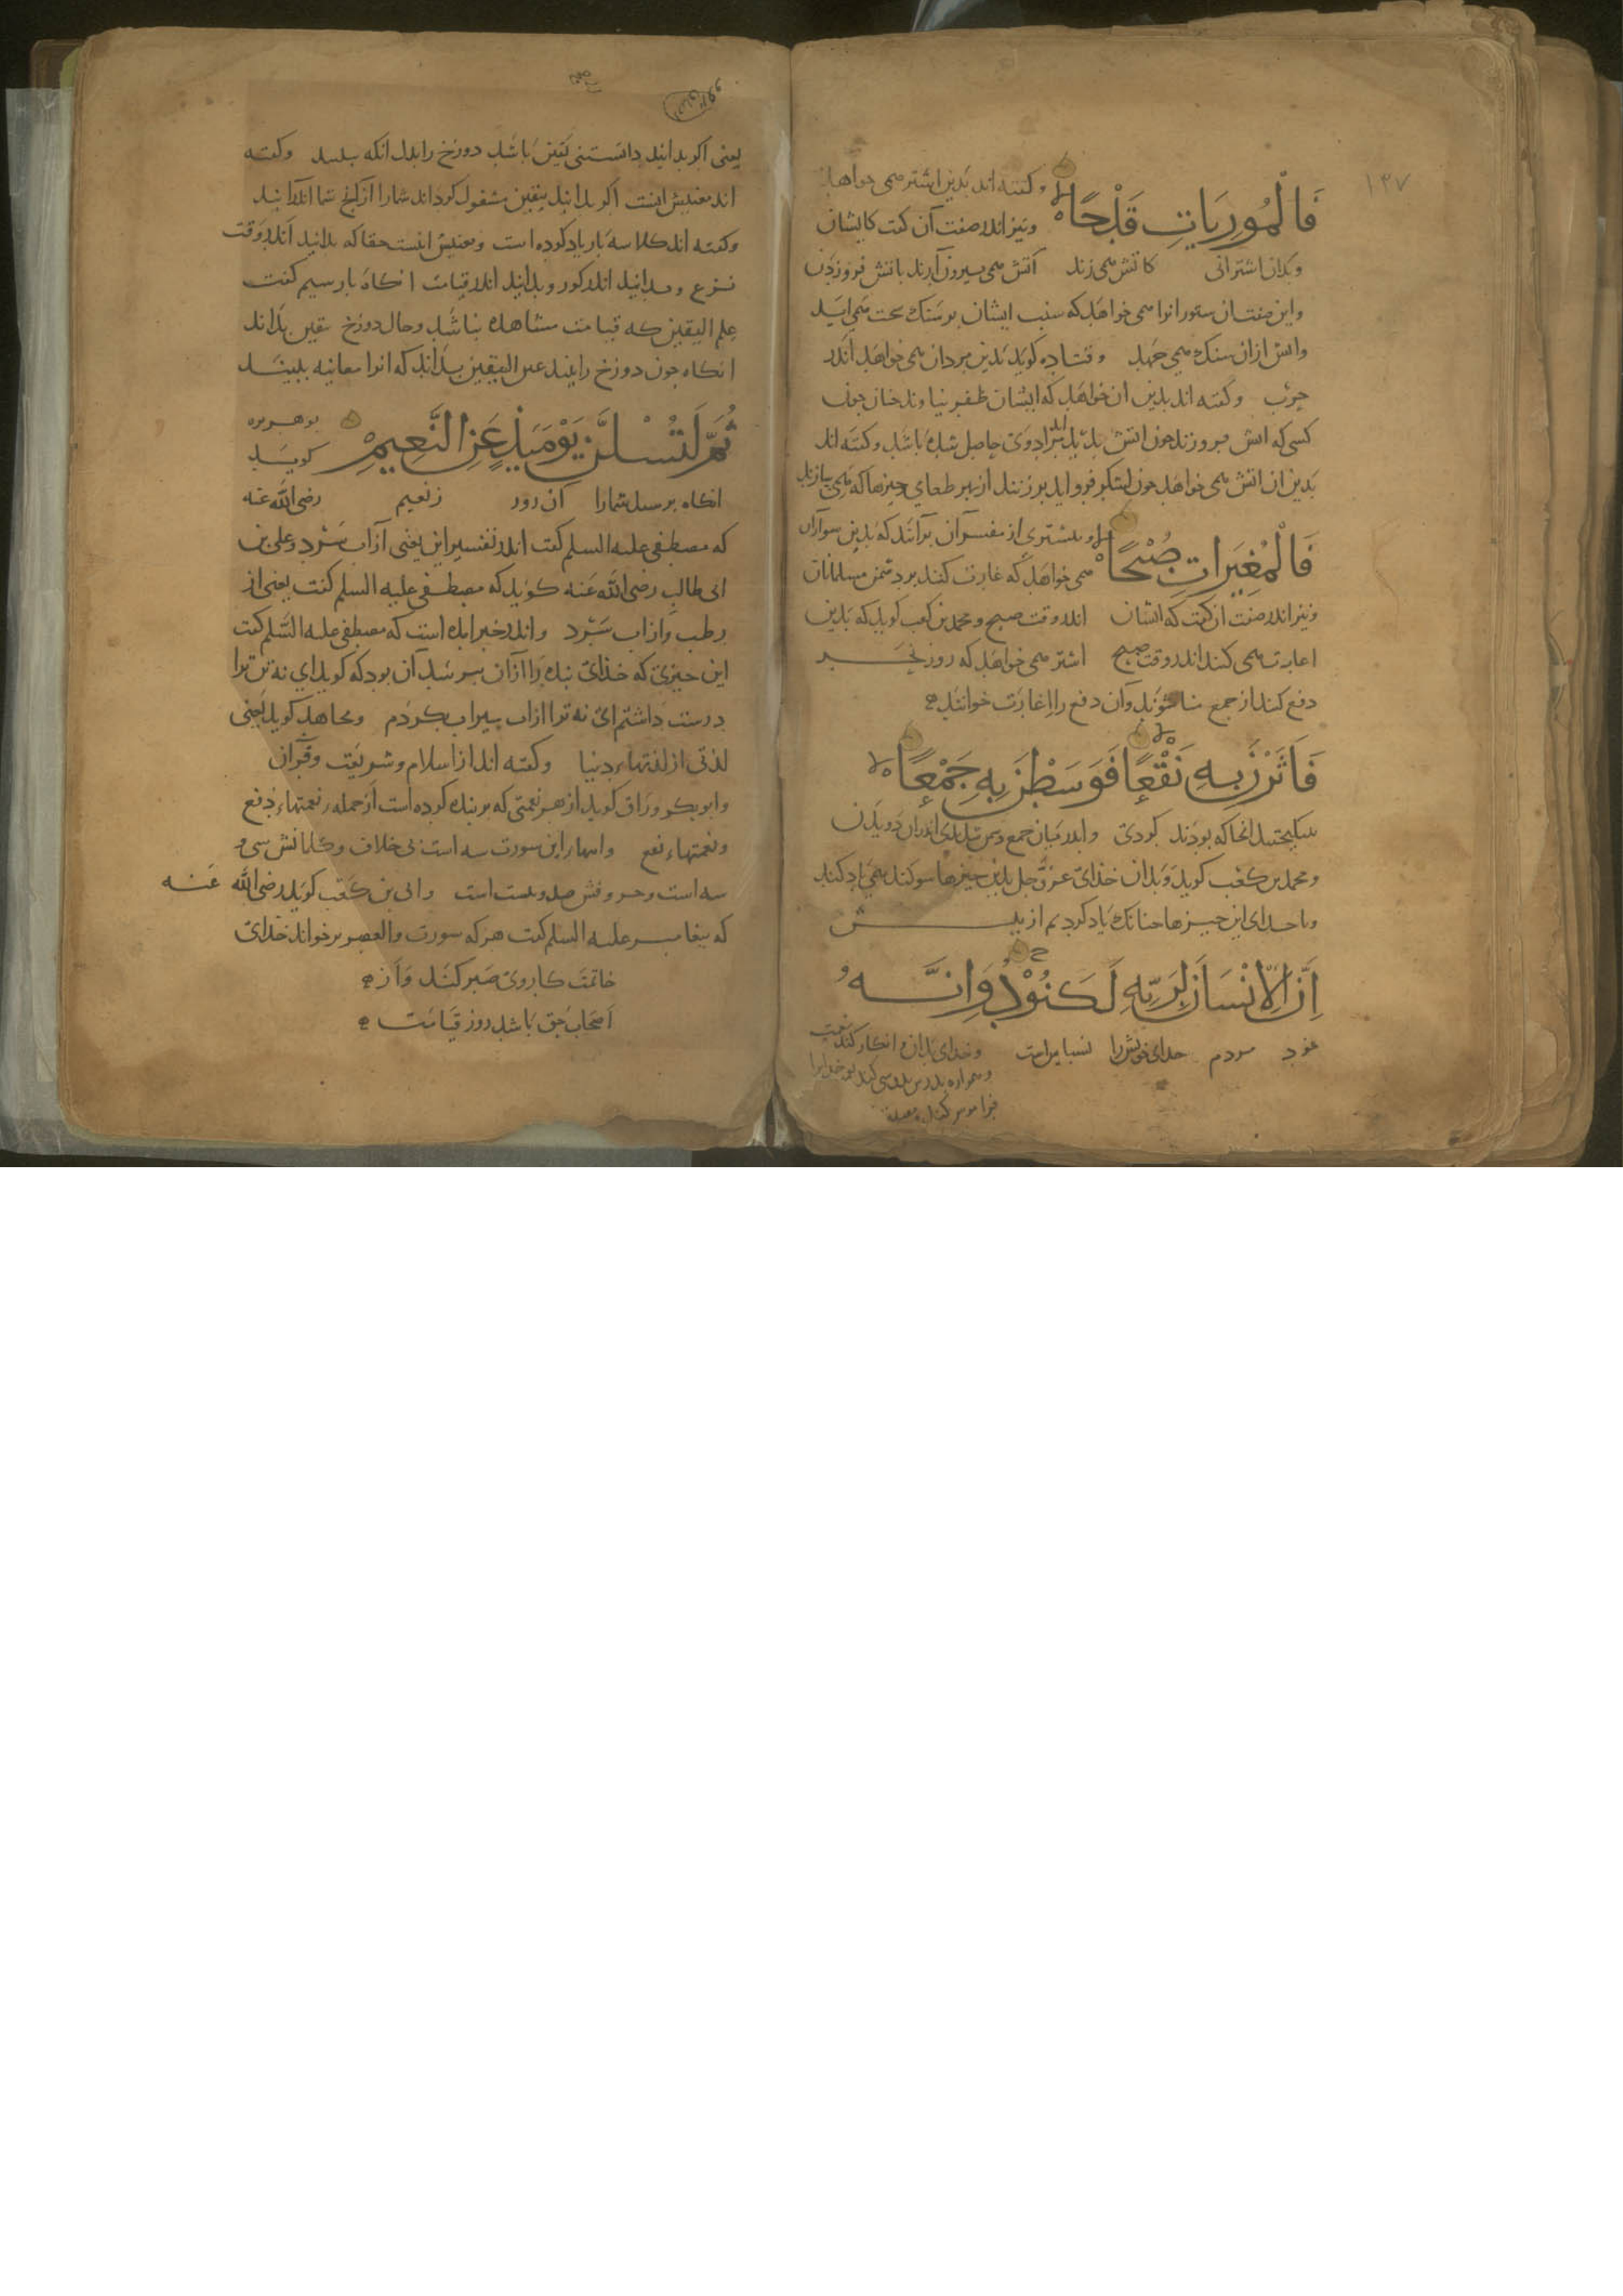 ١٣٧
فَالْمُورِيَاتِ قَدْحًا
وكفته اند بدين اشتر همى خواهد
ونيز اندر صفت آن كفت كايشان
وبدان اشترانى كاتش همى زند آتش همى بيرون آرند باتش فروزدن
واين صفت ان ستور انرا همى خواهد كه سنب ايشان بر سنك سخت همى ايد
واتش ازان سنك همى جهد وقتاده كويد بدين مردان همى خواهد اندر
حرب وكفته اند بدين ان خواهد كه ايشان ظفر نيا وند خان جون
كسى كه اتش فروزند جون اتش بديد ايد مرادوى حاصل شده باشد وكفته اند
بدين ان اتش همى خواهد جون لشكر فرو ايد بر زنند از بهر طعام وجيزها كه همى پازند
فَالْمُغِيرَاتِ صُبْحًا
وبيشترى از مفسران برانند كه بدين سواران
همى خواهد كه غارت كنند بر دشمن مسلمانان
ونيز اندر صفت ان كفت كه ايشان اندر وقت صبح ومحمد بن كعب كويد كه بدين
اغارت همى كنند اندر وقت صبح اشتر همى خواهد كه روز نحر
دفع كنند از جمع منا شوند وآن دفع را اغارت خوانند
فَأَثَرْنَ بِهِ نَقْعًا فَوَسَطْنَ بِهِ جَمْعًا
بينكيختند انجا كه بودند كردى واندر ميان جمع دشمن شدندى اندران دويدن
ومحمد بن كعب كويد وبدان خداى عز وجل بدين جيزها سوكند همى ياد كند
وما حداى اين جيزها حنانك ياد كرديم از پيش
إِنَّ الْإِنْسَانَ لِرَبِّهِ لَكَنُودٌ وَإِنَّهُ
مردم خداى خويش را نسپاس است وخداى بدان انكار كند
وهمواره
فراموش كند
يعنى اكر بدانيد دانستنى يقين باشد دوزخ را بدل انكه ببينيد وكفته
اند معنيش اينست اكر بدانيد بيقين مشغول كرداند شمارا ازانج شما اندرانيد
وكفته اند كلا سه بار ياد كرده است ومعنيش اينست حقا كه بدانيد اندر وقت
نزع وبدانيد اندر كور وبدانيد اندر قيامت انكاه بار سيم كفت
علم اليقين كه قيامت مشاهده باشد وحال دوزخ يقين بداند
انكاه جون دوزخ را بيند عين اليقين بداند كه انرا معاينه ببيند
ثُمَّ لَتُسْئَلُنَّ يَوْمَئِذٍ عَنِ النَّعِيمِ
بو هريره
كويد
انكاه برسند شمارا آن روز زنعيم رضى الله عنه
كه مصطفى عليه السلم كفت اندر تفسير اين يعنى از آب سرد وعلى بن
ابى طالب رضى الله عنه كويد كه مصطفى عليه السلم كفت يعنى از
رطب وازاب سرد واندر خبر امده است كه مصطفى عليه السلم كفت
اين جيزى كه خداى بنده را ازان برسد آن بود كه كويد اى نه تن ترا
درست داشتم اى نه ترا ازاب سيراب بكردم ومجاهد كويد يعنى
لذتى از لذتهاء دنيا وكفته اند از اسلام وشريعت وقرآن
وابو بكر وراق كويد از هر نعمتى كه بر بنده كرده است از جمله نعمتهاء دفع
ونعمتهاء نفع وايتهاء اين سورت سه است بى خلاف وكلماتش سى و
سه است وحروفش صد وبيست است وابى بن كعب كويد رضى الله عنه
كه پيغامبر عليه السلم كفت هر كه سورت والعصر بر خواند خداى
خاتمت كار وى صبر كند واز
اصحاب حق باشد روز قيامت